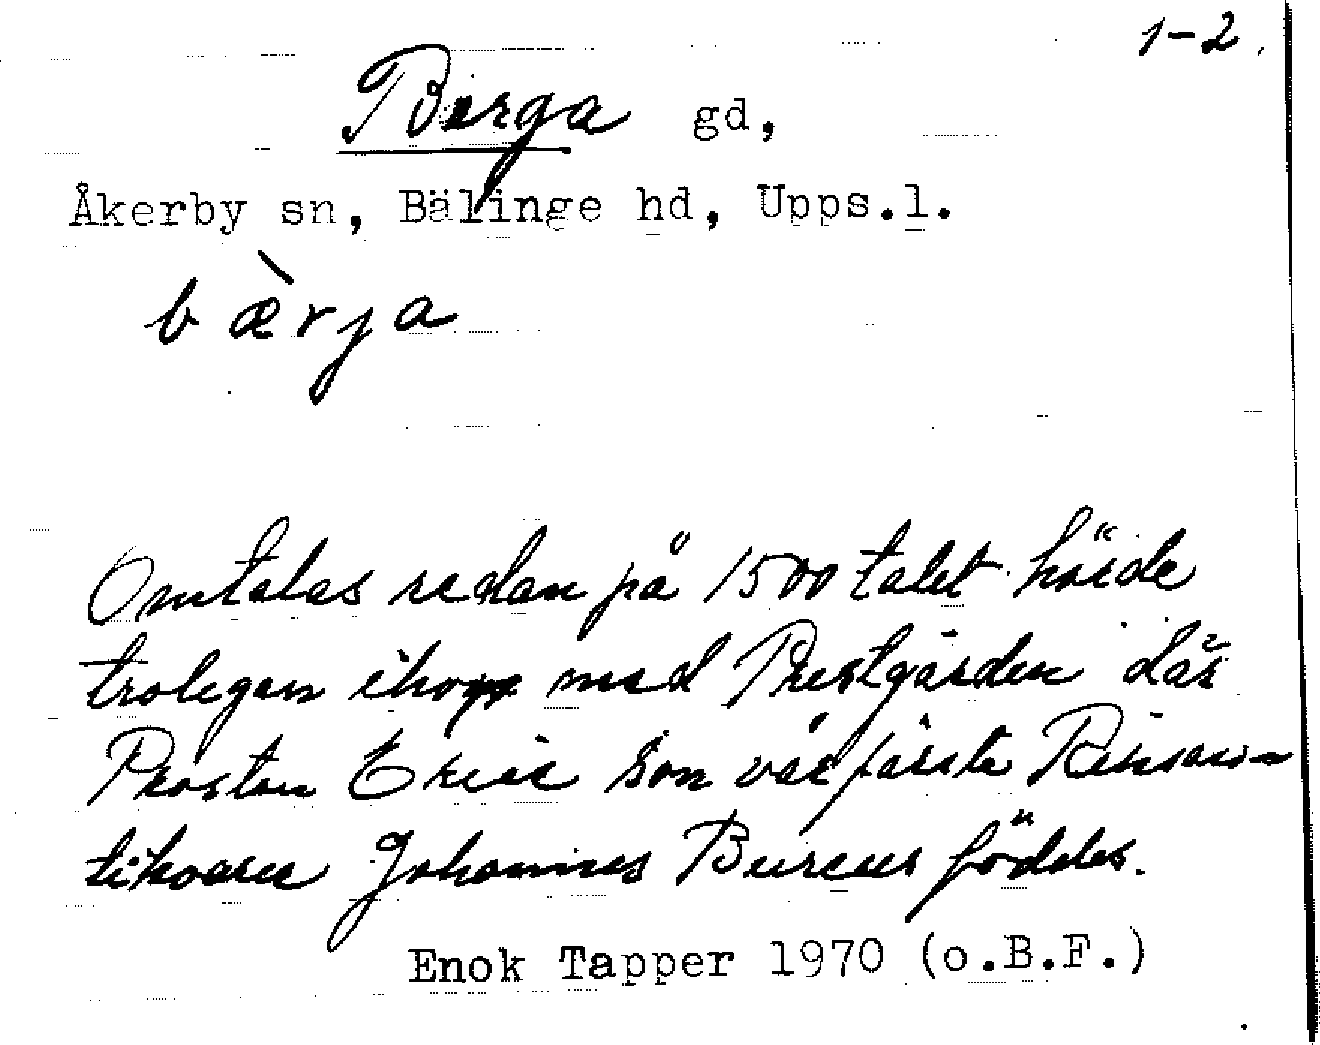 1-2.
Berga gd,
Åkerby sn, Bälinge hd, Upps.l.
bæ̀rja
Omtalas redan på 1500 talet hörde
troligen ihop med Prestgården där
Prosten Erics son vår förste Riksan-
tikvarie Johannes Bureus föddes.
Enok Tapper 1970 (o.B.F.)